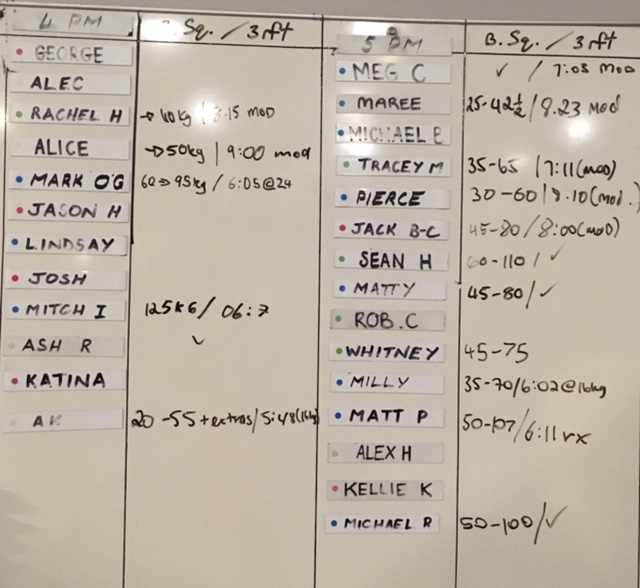 4 PM Sq. / 3rft
GEORGE
ALEC
RACHEL H → 40kg | 8.15 MOD
ALICE → 50kg | 9:00 mod
MARK O'G 60 → 95kg / 6:05@24
JASON H
LINDSAY
JOSH
MITCH I 125KG / 06:
ASH R ✓
KATINA
AK 20-55 + extras / 5:48
5 PM B.Sq. / 3rft
MEG C ✓ / 7:05 MOD
MAREE 25-42½ / 8.23 Mod
MICHAEL B
TRACEY M 35-65 / 7:11 (mod)
PIERCE 30-60 | 8.10 (mod.)
JACK B-C 45-80 / 8:00 (MOD)
SEAN H 60-110 / ✓
MATTY 45-80 / ✓
ROB.C
WHITNEY 45-75
MILLY 35-70/6:02@16kg
MATT P 50-107/6:11 rx
ALEX H
KELLIE K
MICHAEL R 50-100/✓